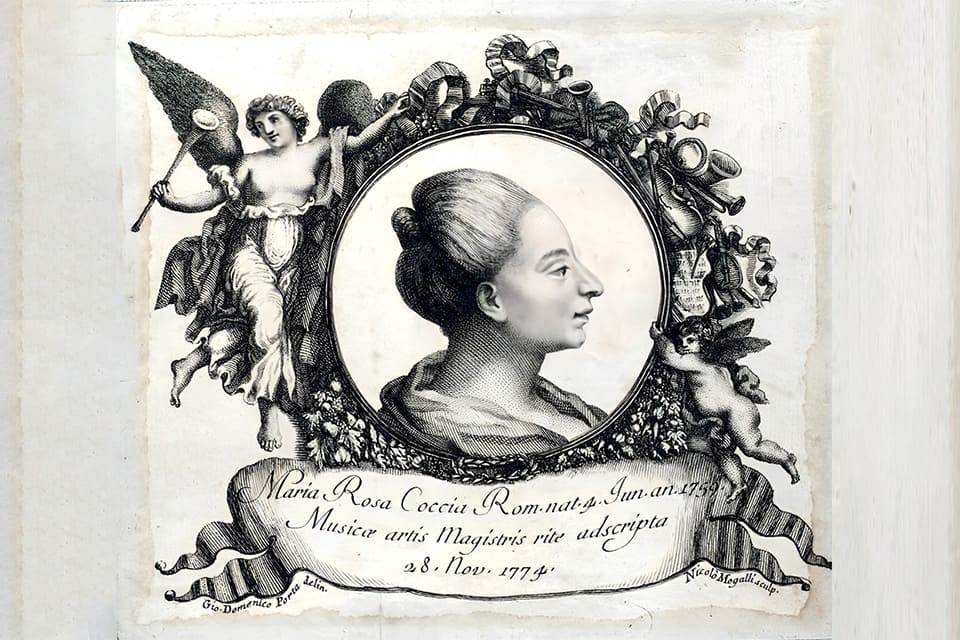 Maria Rosa Coccia Rom. nat. 4. Jun. an. 1759.
Musicæ artis Magistris rite adscripta
28. Nov. 1774.
Gio. Domenico Porta delin.
Nicolò Mogalli sculp.